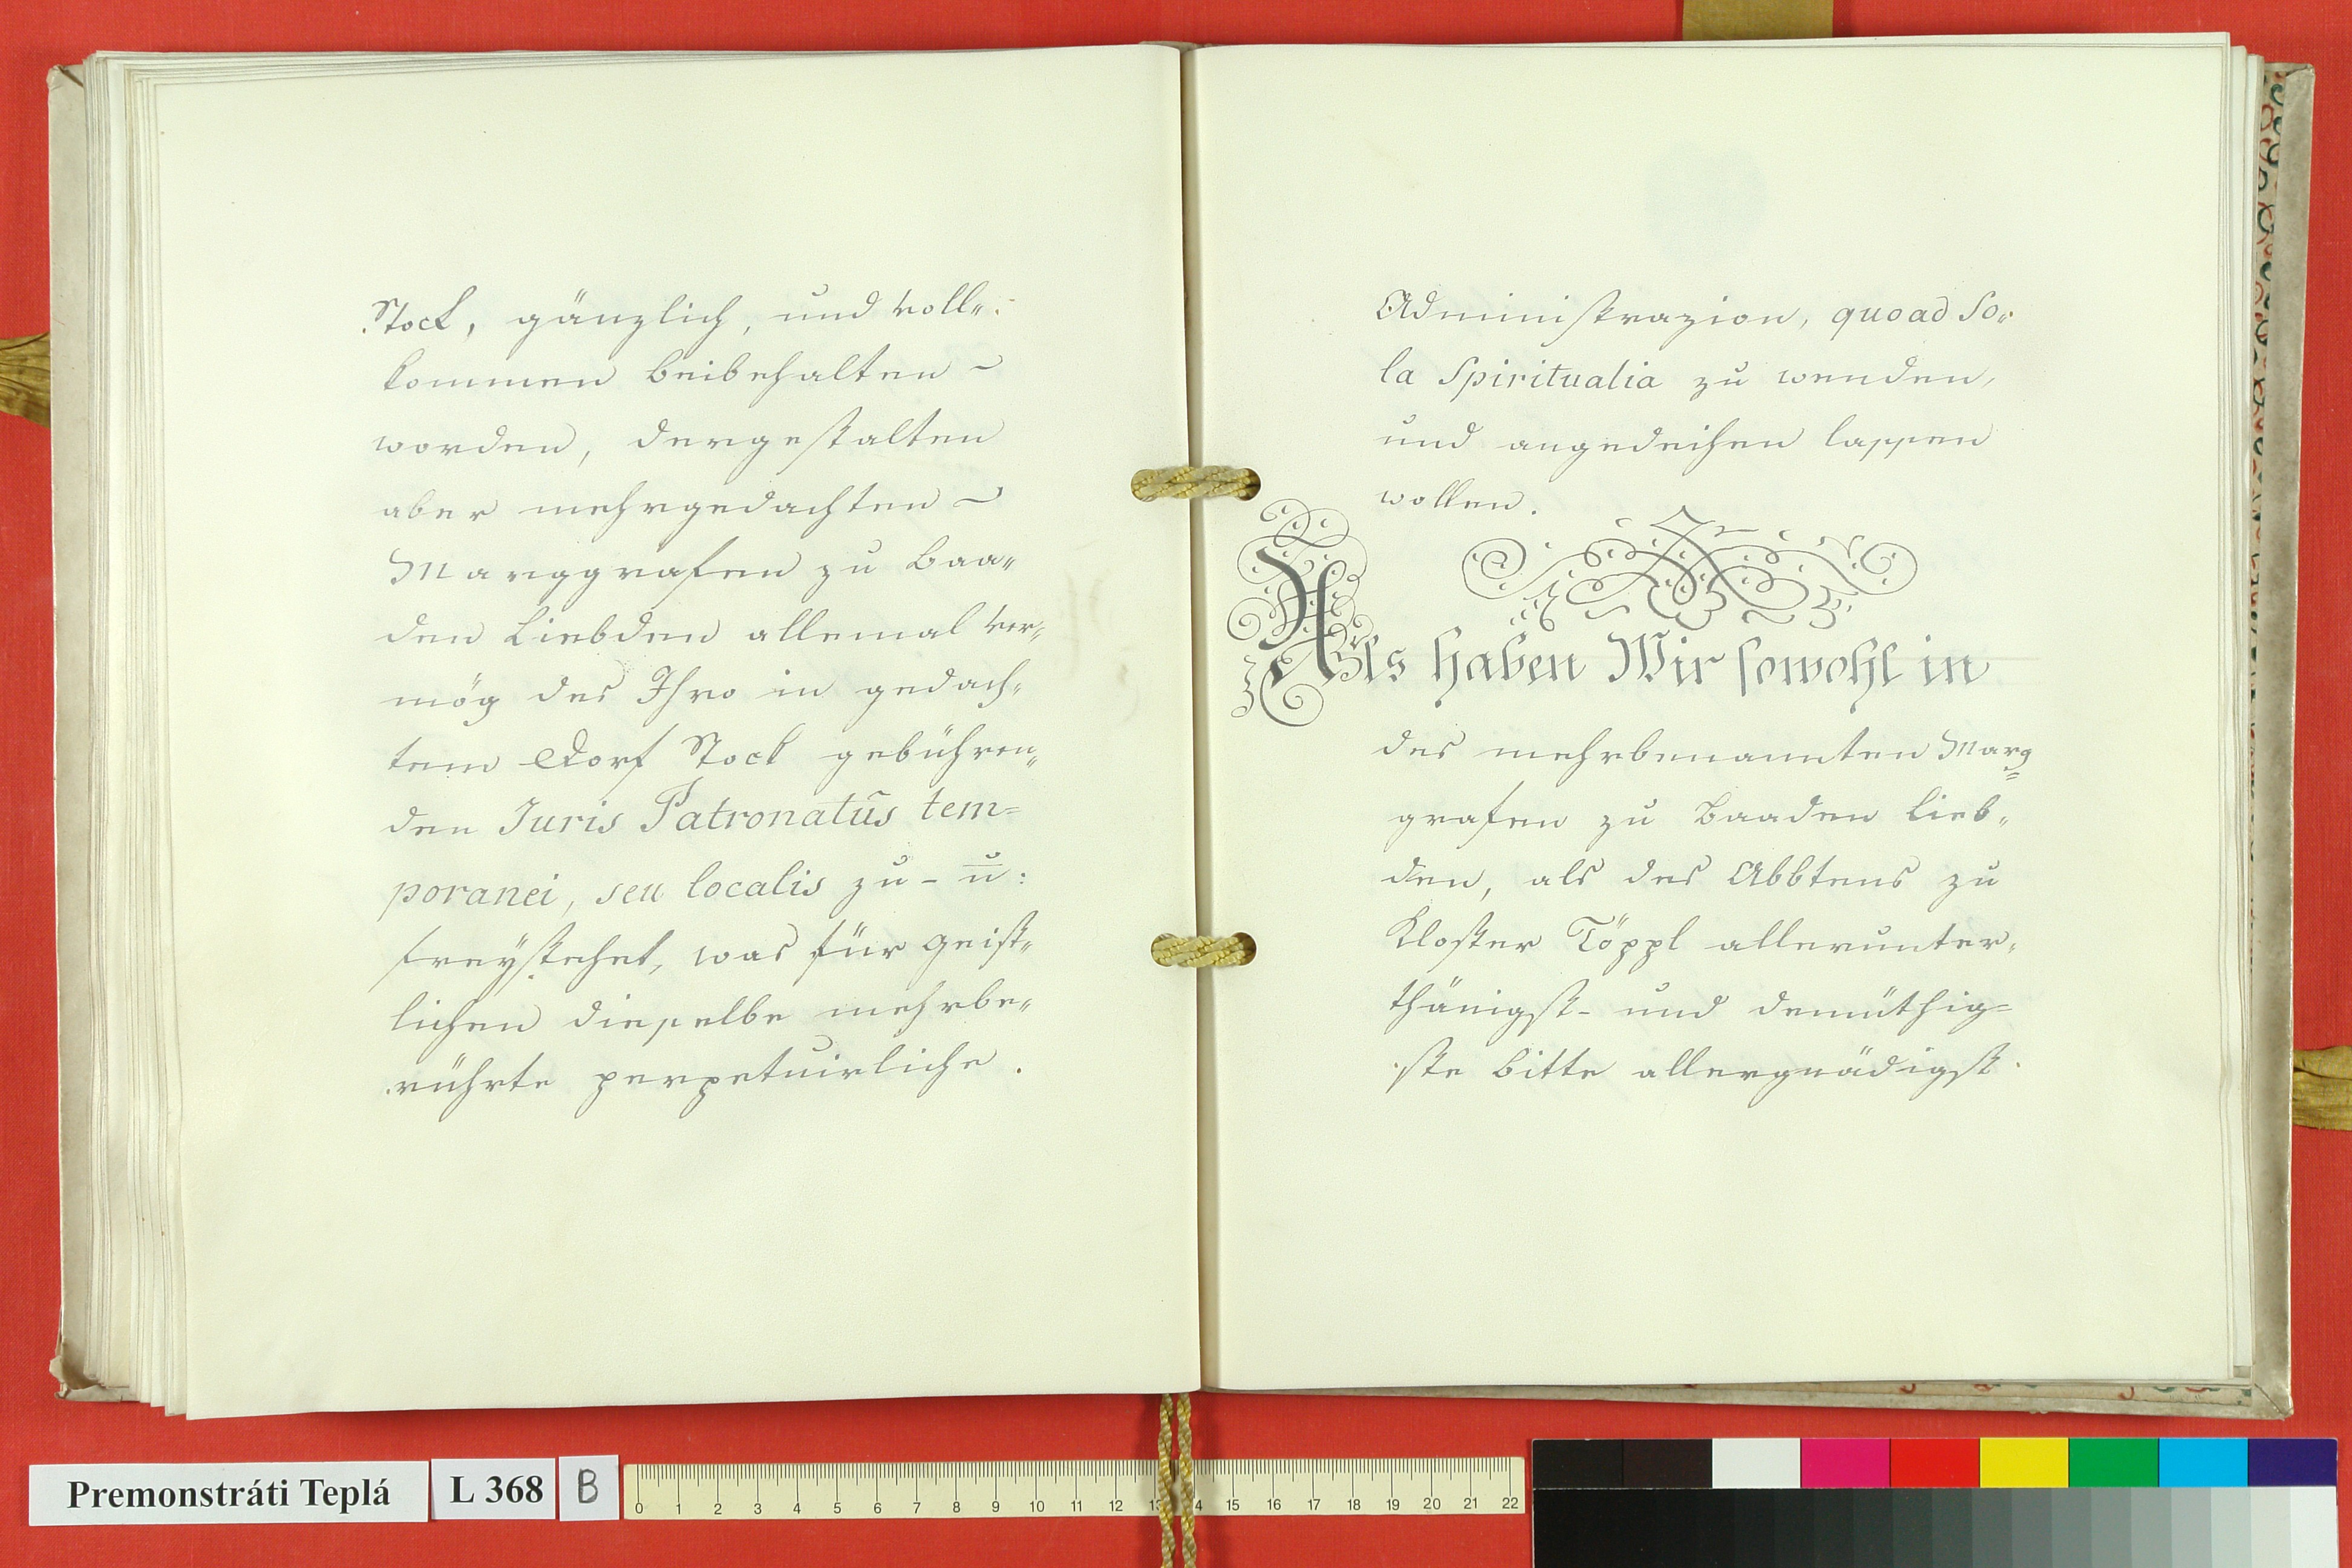 Stock, gänzlich, und voll„
kommen beibehalten ~
worden, dergestalten
aber mehrgedachten ~
Marggrafen zu Baa„
den Liebden allemal ver„
mög des Ihro in gedach„
tem Dorf Stock gebühren„
den Juris Patronatûs tem=
poranei, seu localis zu- u:
freystehet, was für geist„
lichen dieselbe mehrbe„
rührte perpetuirliche.
Administrazion, quoad So„
la Spiritualia zu wenden,
und angedeihen lassen
wollen.
Als haben Wir sowohl in
des mehrbenannten Marg=
grafen zu Baaden Lieb„
den, als des Abbtens zu
Kloster Töppl allerunter„
thänigst- und demüthig=
ste bitte allergnädigst
Premonstráti Teplá L 368 B
0 1 2 3 4 5 6 7 8 9 10 11 12 13 14 15 16 17 18 19 20 21 22